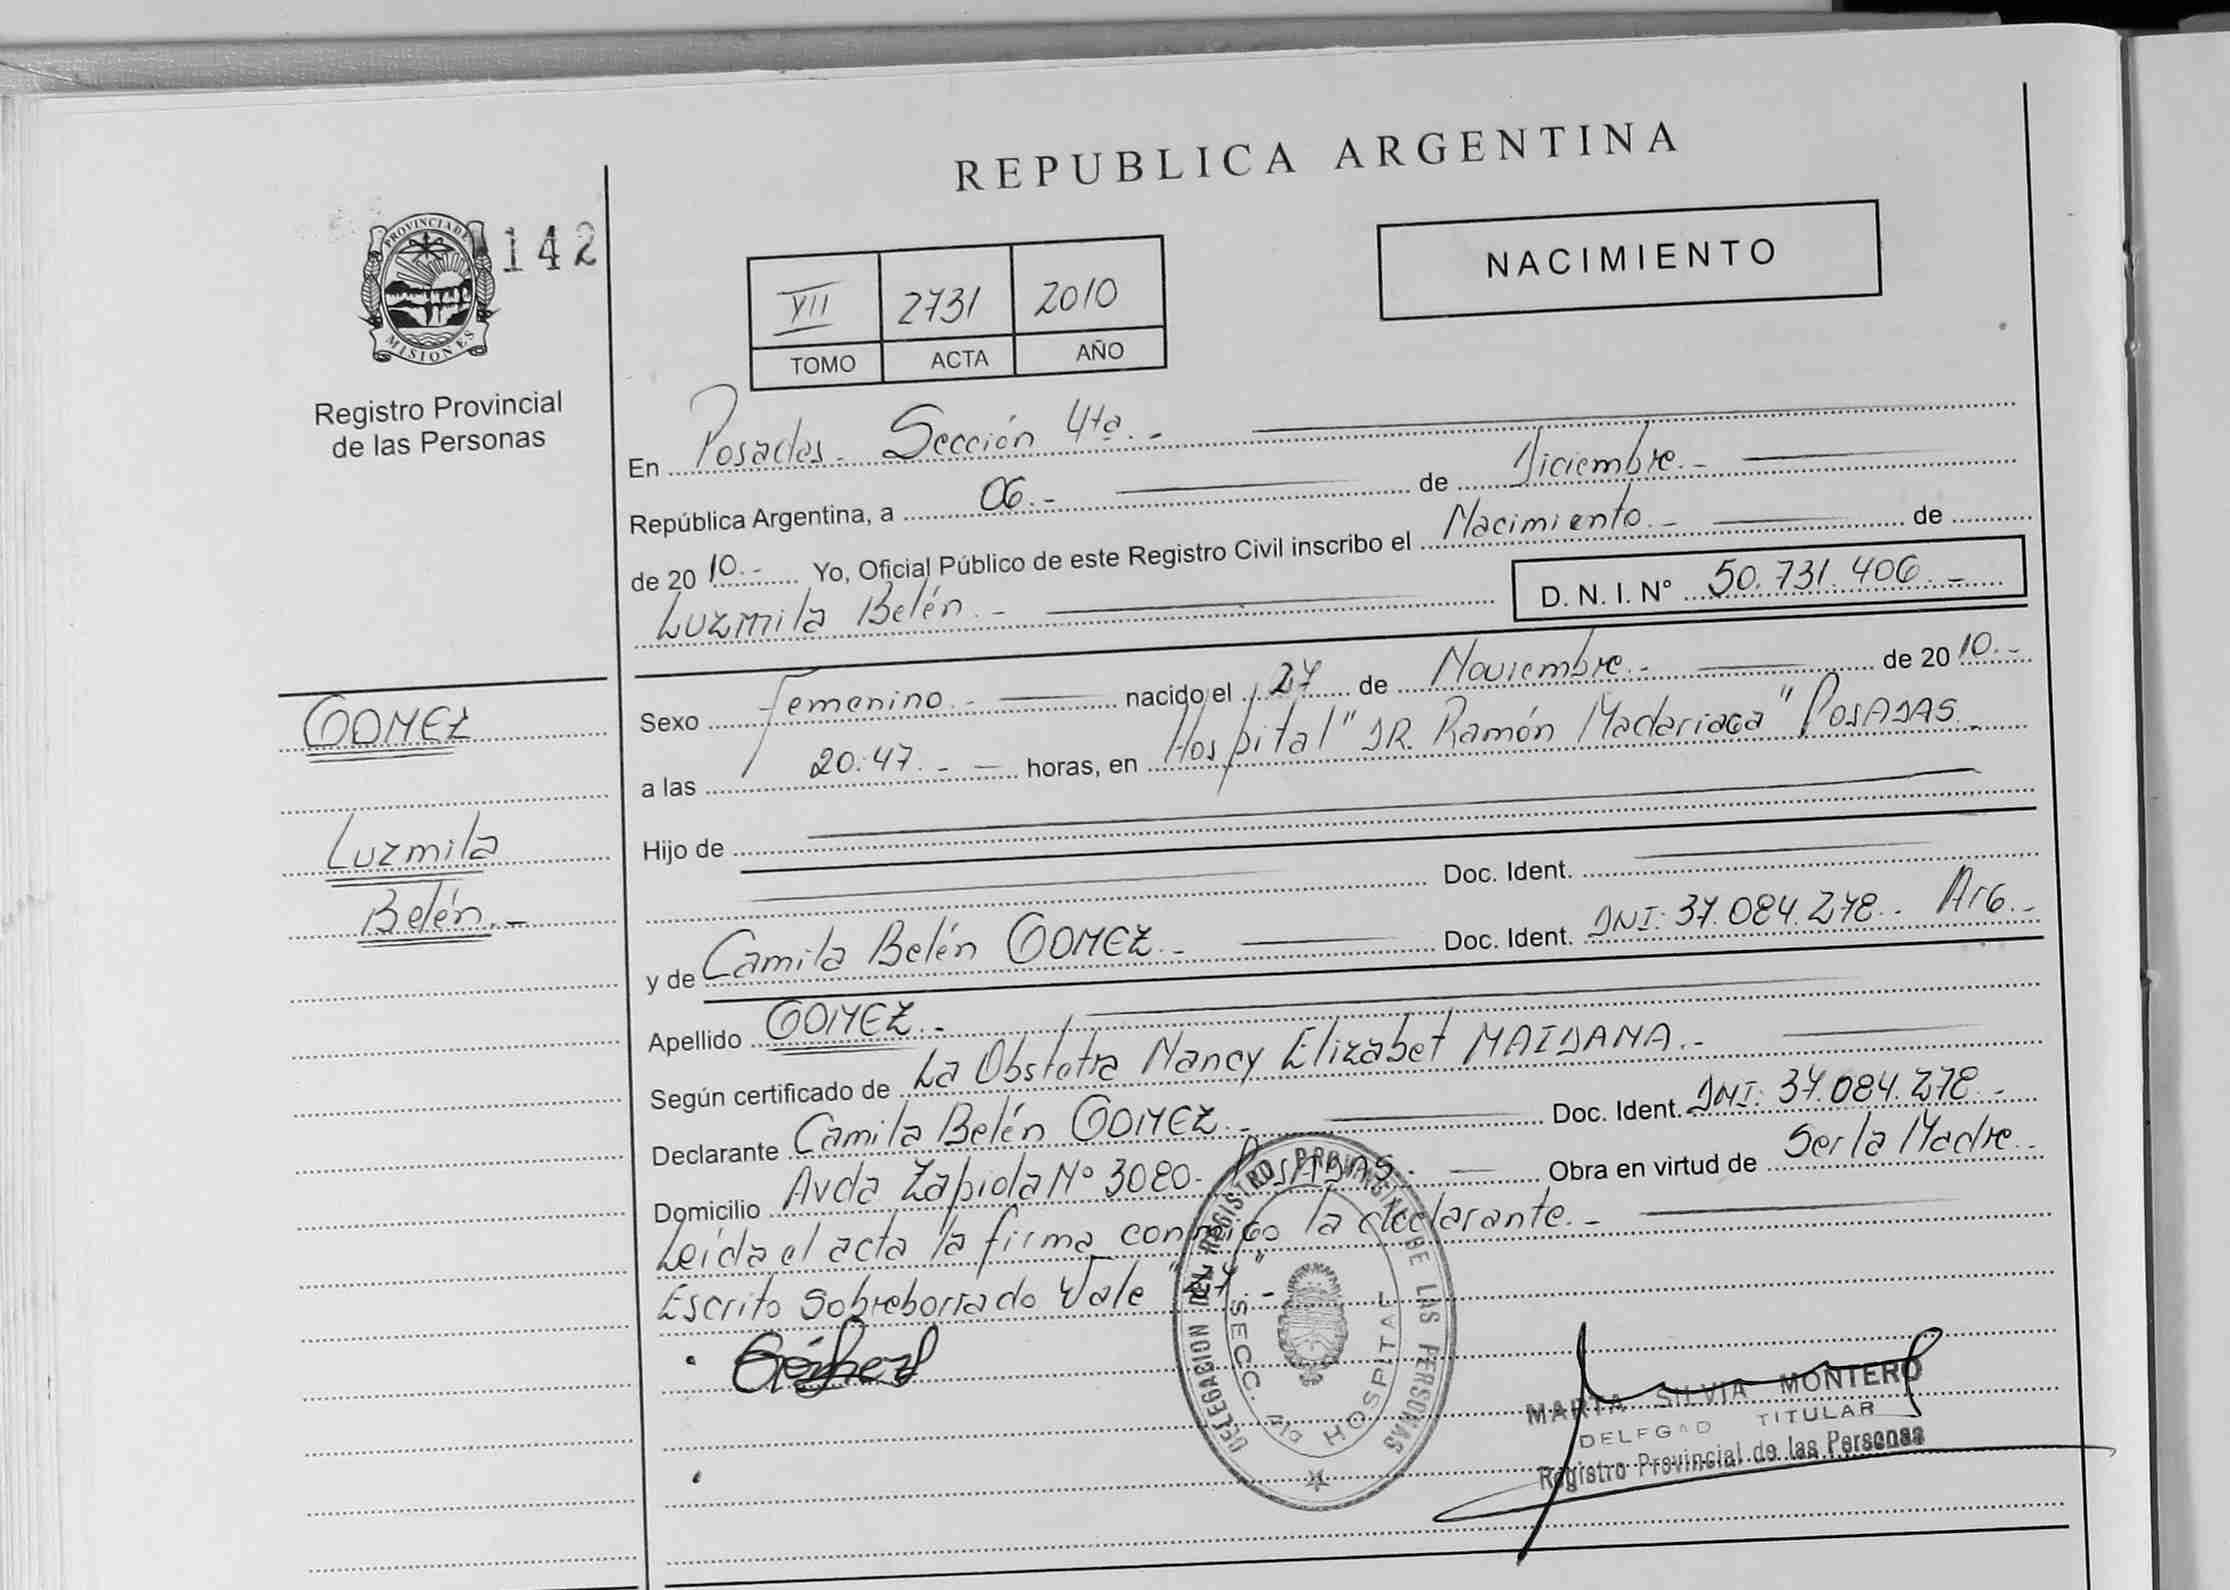 REPUBLICA ARGENTINA
PROVINCIA DE
MISIONES
142
Registro Provincial
de las Personas
VII 2731 2010
TOMO ACTA AÑO
NACIMIENTO
En Posadas - Sección 4ta.-
República Argentina, a 06.- de Diciembre.-
de 2010.- Yo, Oficial Público de este Registro Civil inscribo el Nacimiento.- de
Luzmila Belén.- D. N. I. Nº 50.731.406.-
GOMEZ
Luzmila
Belén.-
Sexo Femenino.- nacido el 27 de Noviembre.- de 2010.-
a las 20:47.- horas, en Hospital "DR. Ramón Madariaga" POSADAS.-
Hijo de
Doc. Ident.
y de Camila Belén GOMEZ.- Doc. Ident. DNI: 37.084.278.- Arg.-
Apellido GOMEZ.-
Según certificado de La Obstetra Nancy Elizabet MAIDANA.-
Declarante Camila Belén GOMEZ.- Doc. Ident. DNI: 37.084.278.-
Domicilio Avda Zapiola Nº 3080- POSADAS.- Obra en virtud de Ser la Madre.-
Leída el acta la firma conmigo la declarante.-
Escrito Sobreborrado Vale "27".-
DELEGACION DEL REGISTRO PROVINCIAL DE LAS PERSONAS
SECC. 4ta HOSPITAL
MARTA SILVIA MONTERO
DELEGAD TITULAR
Registro Provincial de las Personas